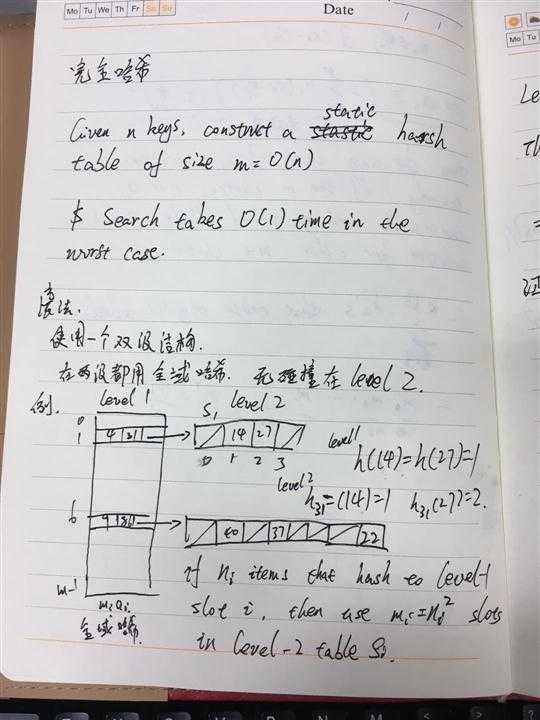 Mo Tu We Th Fr Sa Su
Date
完全哈希
Given n keys, construct a static harsh
table of size m = O(n)
& Search takes O(1) time in the
worst case.
想法.
使用一个双级结构.
在两级都用全域哈希. 无碰撞在 level 2.
例.
level 1
S1 level 2
0
1 4 31 14 27
0 1 2 3
level1
h(14)=h(27)=1
level2
h31=(14)=1 h31(27)=2.
6 9 86 40 37 22
m-1
mi ai
全域哈希.
if ni items that hash to level-1
slot i, then use mi = ni² slots
in level-2 table Si.
Mo Tu
Le
Th